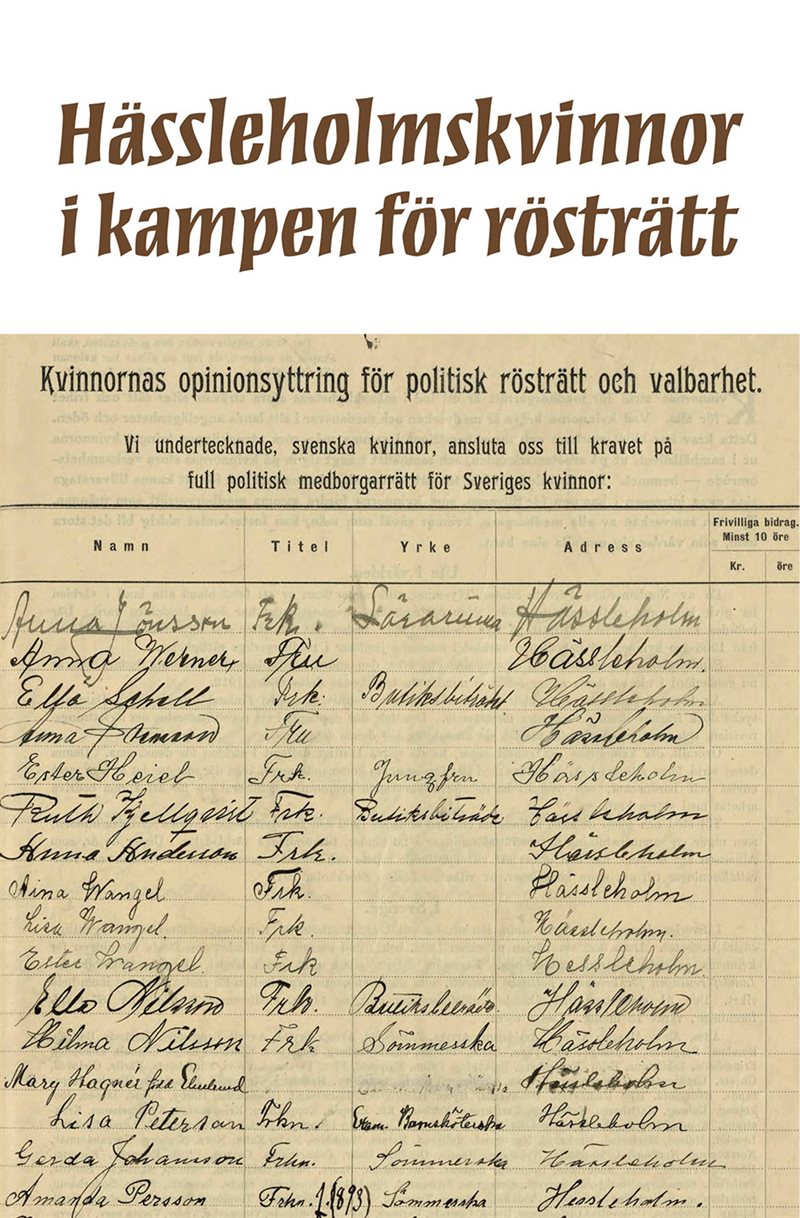 Hässleholmskvinnor
i kampen för rösträtt
Kvinnornas opinionsyttring för politisk rösträtt och valbarhet.
Vi undertecknade, svenska kvinnor, ansluta oss till kravet på
full politisk medborgarrätt för Sveriges kvinnor:
Namn Titel Yrke Adress Frivilliga bidrag. Minst 10 öre
Kr. öre
Anna Jönsson Frk. Hässleholm
Anna Werner Fru Hässleholm.
Ella Schell Frk. Butiksbiträde Hässleholm
Anna Fru Hässleholm
Ester Heieb Frk. Jungfru Hässleholm
Ruth Kjellqvist Frk. Butiksbiträde Hässleholm
Anna Anderson Frk. Hässleholm
Aina Wangel Frk. Hässleholm
Lisa Wangel. Frk. Hässleholm.
Ester Wangel. Frk Hessleholm.
Ella Nilsson Frk. Hässleholm
Hilma Nilsson Frk Sömmesska Hässleholm
Mary Hagnér Hässleholm
Lisa Peterson Frkn. Exam. Barnsköterska Hässleholm
Gerda Johansson Frkn. Sömmerska Hässleholm
Amanda Persson Frkn. Sömmesska Hessleholm.